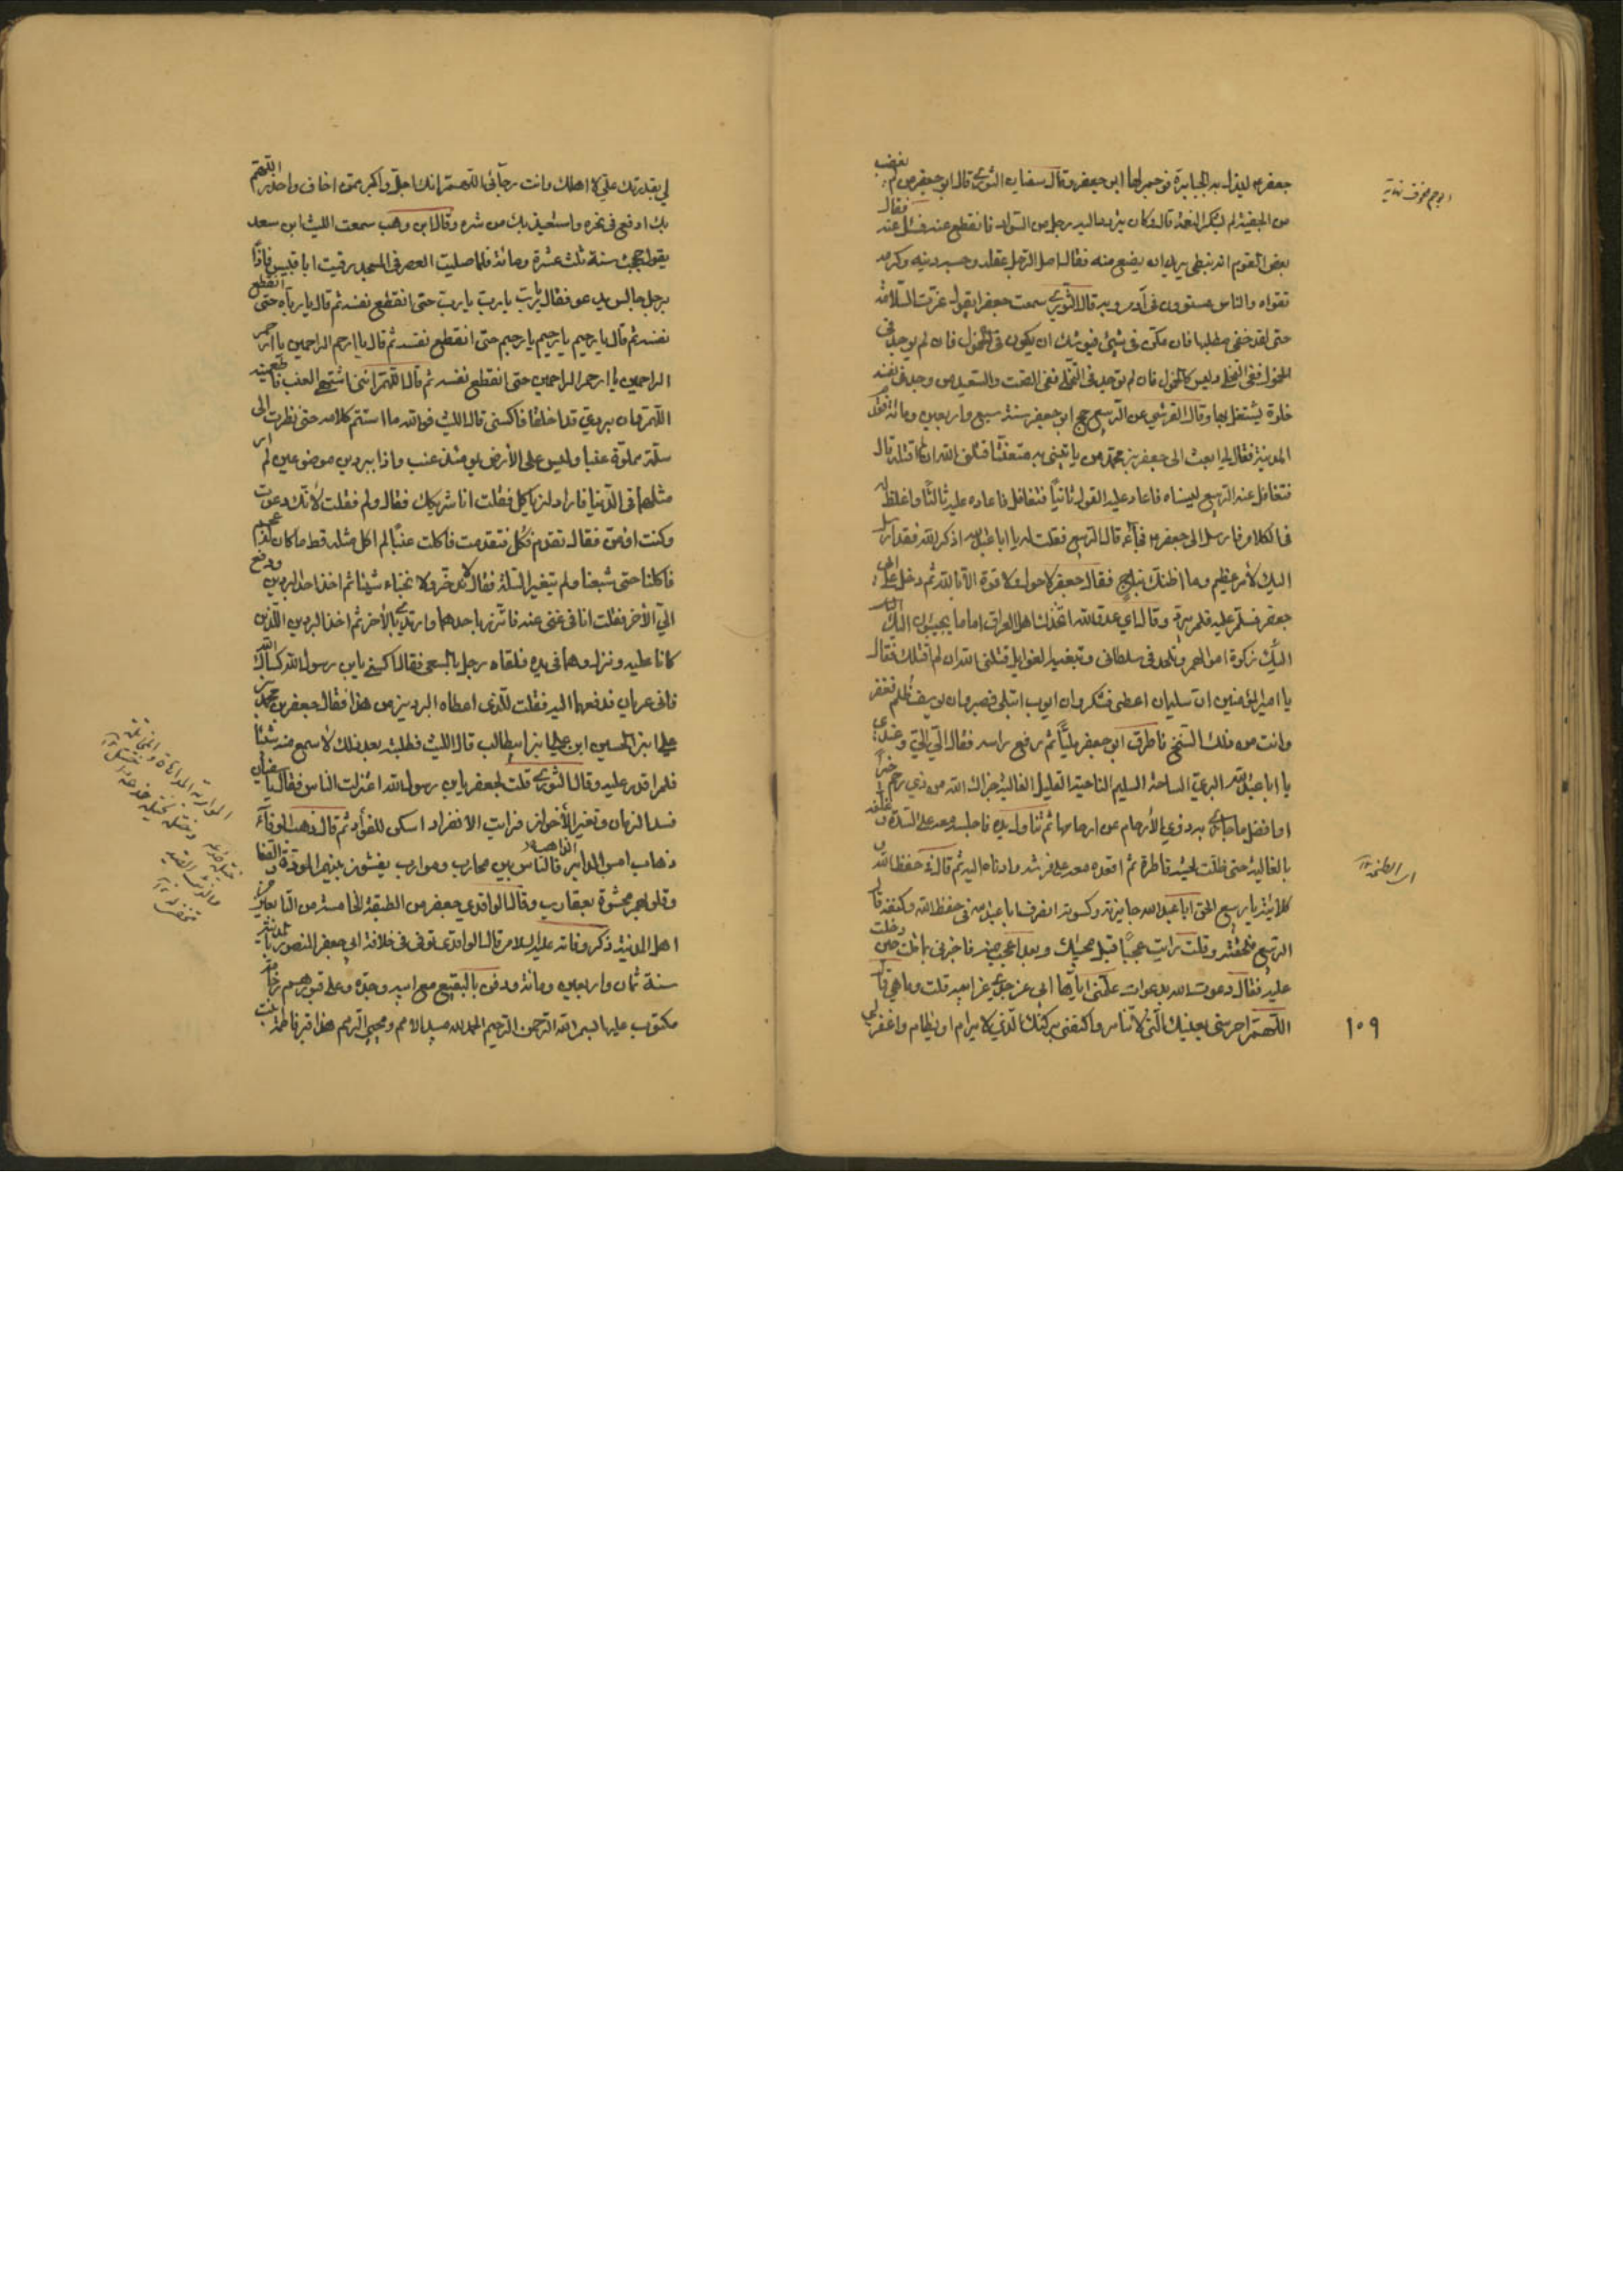 جعفر م ليذل به الجبابرة فوجم لها ابو جعفر وقال سفيان الثوري قال ابو جعفر من لم يغضب
من الجفوة لم يشكر النعمة قال وكان يتردد اليه رجل من السواد فانقطع عنه فسئل عنه فقال
بعض القوم انه نبطي يريد ان يضع منه فقال اصل الرجل عقله وحسبه دينه وكرمه
تقواه والناس مستوون في آدم وبه قال الثوري سمعت جعفرا يقول عزت السلامة
حتى لقد خفي مطلبها فان تكن في شيئ فيوشك ان يكون في الخمول فان لم يوجد في
الخمول ففي التخلي وليس كالخمول فان لم توجد في التخلي ففي الصمت والسعيد من وجد في نفسه
خلوة يشتغل بها وقال القرشي عن الربيع حج ابو جعفر سنة سبع واربعين ومائة فقدم
المدينة فقال لي ابعث الى جعفر بن محمد من ياتيني به متعنتا قتلني الله ان لم اقتله قال
فتغافل عنه الربيع لينساه فاعاد عليه القول ثانيا فتغافل فاعاده عليه ثالثا واغلظ له
في الكلام فارسل الى جعفر م فجاءه قال الربيع فقلت له يا ابا عبدالله اذكر الله فقد ارسل
اليك لامر عظيم وما اظنك بناج فقال جعفر لا حول ولا قوة الا بالله ثم دخل على ابي
جعفر فسلم عليه فلم يرد وقال اي عدو الله اتخذك اهل العراق اماما يجيئون اليك
اليك زكوة اموالهم وتلحد في سلطاني وتبغيه الغوايل قتلني الله ان لم اقتلك فقال
يا امير المؤمنين ان سليمان اعطي فشكر وان ايوب ابتلي فصبر وان يوسف ظلم فغفر
وانت من ذلك السنخ فاطرق ابو جعفر مليّا ثم رفع راسه فقال الي اليّ وعندي
يا ابا عبدالله البرئ الساحة السليم الناحية القليل الغائلة جزاك الله من ذي رحم خيرا
افضل ما جازى به ذوي الارحام عن ارحامها ثم تناول يده فاجلسه معه على السدة
بالغالية حتى ظلت لحيته قاطرة ثم اقعده معه على فرشه وادناه اليه ثم قال في حفظ الله
كلائته يا ربيع الحق ابا عبدالله جايزته وكسوته انصرف ابا عبدالله في حفظ الله وكنفه قال
الربيع فلحقته وقلت رايت عجبا قبل مجيئك وبعد اعجب منه فاخبرني بما قلت حين دخلت
عليه فقال دعوت الله بدعوات علمني اياها ابي عن جدي عن ابيه قلت وما هي قال
اللهم احرسني بعينك التي لا تنام واكنفني بركنك الذي لا يرام او يظام واغفر لي
١٠٩
لي بقدرتك علي لا اهلك وانت رجائي اللهم انك اجل واكبر ممن اخاف واحذر اللهم
بك ادفع في نحره واستعيذ بك من شره وقال ابن وهب سمعت الليث ابن سعد
يقول حججت سنة ثلث عشرة ومائة فلما صليت العصر في المسجد رقيت ابا قبيس فاذا
برجل جالس يدعو فقال يا رب يا رب يا رب حتى انقطع نفسه ثم قال يا رباه حتى انقطع
نفسه ثم قال يا رحيم يا رحيم يا رحيم حتى انقطع نفسه ثم قال يا ارحم الراحمين يا ارحم
الراحمين يا ارحم الراحمين حتى انقطع نفسه ثم قال اللهم انني اشتهي العنب فاطعمنيه
اللهم وان بردي قد اخلقا فاكسني قال الليث فوالله ما استتم كلامه حتى نظرت الى
سلة مملوة عنبا وليس على الأرض يومئذ عنب واذا ببردين موضوعين لم ار
مثلهما في الدنيا فاراد ان ياكل فقلت انا شريكك فقال ولم فقلت لأنك دعوت
وكنت اؤمن فقال تقدم فكل فتقدمت فاكلت عنبا لم اكل مثله قط ما كان له عجم
فاكلنا حتى شبعنا ولم تتغير السلة فقال لا تدخر ولا تخباء شيئا ثم اخذ احد البردين ودفع
الي الاخر فقلت انا في غنى عنه فاتزر باحدهما وارتدى بالاخر ثم اخذ البردين اللذين
كانا عليه ونزل وهما في يده فلقاه رجل بالسعي فقال اكسني يا بن رسول الله كساك الله
فاني عريان فدفعهما اليه فقلت للذي اعطاه البردين من هذا فقال جعفر بن محمد بن
علي ابن الحسين ابن علي ابن ابيطالب قال الليث فطلبته بعد ذلك لاسمع منه شيئا
فلم اقدر عليه وقال الثوري قلت لجعفر يا بن رسول الله اعتزلت الناس فقال يا سفيان
فسد الزمان وتغير الأخوان فرايت الانفراد اسكن للفؤاد ثم قال ذهب الوفاء
ذهاب امس الذاهب والناس بين محارب وموارب يفشون بينهم المودة والصفا
وقلوبهم محشوة بعقارب وقال الواقدي جعفر من الطبقة الخامسة من التابعين من
اهل المدينة ذكر وفاته عليه السلام قال الواقدي توفي في خلافة ابي جعفر المنصور بالمدينة
سنة ثمان واربعين ومائة ودفن بالبقيع مع ابيه وجده وعلى قبورهم رخامة
مكتوب عليها بسم الله الرحمن الرحيم الحمد لله مبيد الامم ومحيي الرمم هذا قبر فاطمة بنت